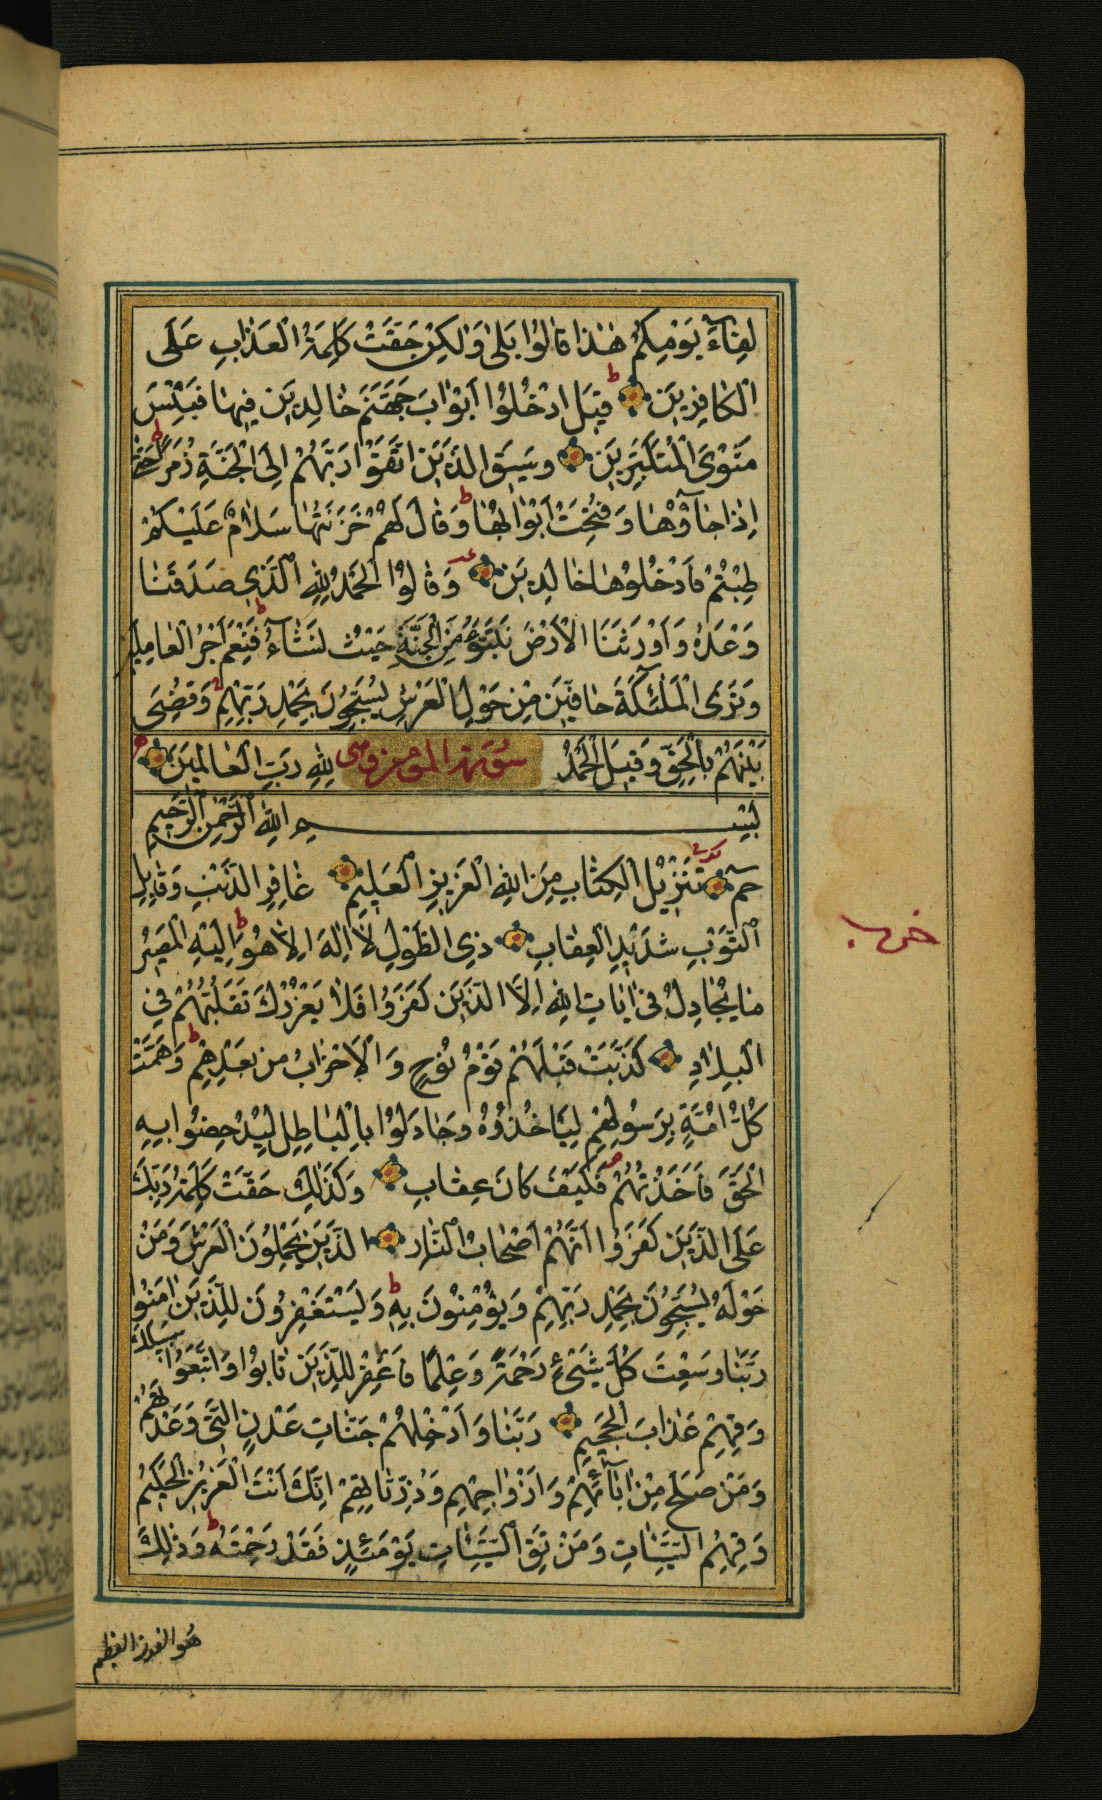 لِقَاءَ يَوْمِكُمْ هٰذَا قَالُوا بَلىٰ وَلٰكِنْ حَقَّتْ كَلِمَةُ الْعَذَابِ عَلَى
الْكَافِرِينَ قِيلَ ادْخُلُوا أَبْوَابَ جَهَنَّمَ خَالِدِينَ فِيهَا فَبِئْسَ
مَثْوَى الْمُتَكَبِّرِينَ وَسِيقَ الَّذِينَ اتَّقَوْا رَبَّهُمْ إِلَى الْجَنَّةِ زُمَرًا حَتّٰى
إِذَا جَاؤُهَا وَفُتِحَتْ أَبْوَابُهَا وَقَالَ لَهُمْ خَزَنَتُهَا سَلَامٌ عَلَيْكُمْ
طِبْتُمْ فَادْخُلُوهَا خَالِدِينَ وَقَالُوا الْحَمْدُ لِلّٰهِ الَّذِي صَدَقَنَا
وَعْدَهُ وَأَوْرَثَنَا الْأَرْضَ نَتَبَوَّءُ مِنَ الْجَنَّةِ حَيْثُ نَشَاءُ فَنِعْمَ أَجْرُ الْعَامِلِينَ
وَتَرَى الْمَلٰئِكَةَ حَافِّينَ مِنْ حَوْلِ الْعَرْشِ يُسَبِّحُونَ بِحَمْدِ رَبِّهِمْ وَقُضِيَ
بَيْنَهُمْ بِالْحَقِّ وَقِيلَ الْحَمْدُ سورة المؤمن لِلّٰهِ رَبِّ الْعَالَمِينَ
بِسْمِ اللّٰهِ الرَّحْمٰنِ الرَّحِيمِ
حٰمٓ تَنْزِيلُ الْكِتَابِ مِنَ اللّٰهِ الْعَزِيزِ الْعَلِيمِ غَافِرِ الذَّنْبِ وَقَابِلِ
التَّوْبِ شَدِيدِ الْعِقَابِ ذِي الطَّوْلِ لَا إِلٰهَ إِلَّا هُوَ إِلَيْهِ الْمَصِيرُ
مَا يُجَادِلُ فِي اٰيَاتِ اللّٰهِ إِلَّا الَّذِينَ كَفَرُوا فَلَا يَغْرُرْكَ تَقَلُّبُهُمْ فِي
الْبِلَادِ كَذَّبَتْ قَبْلَهُمْ قَوْمُ نُوحٍ وَالْأَحْزَابُ مِنْ بَعْدِهِمْ وَهَمَّتْ
كُلُّ أُمَّةٍ بِرَسُولِهِمْ لِيَأْخُذُوهُ وَجَادَلُوا بِالْبَاطِلِ لِيُدْحِضُوا بِهِ
الْحَقَّ فَأَخَذْتُهُمْ فَكَيْفَ كَانَ عِقَابِ وَكَذٰلِكَ حَقَّتْ كَلِمَةُ رَبِّكَ
عَلَى الَّذِينَ كَفَرُوا أَنَّهُمْ أَصْحَابُ النَّارِ الَّذِينَ يَحْمِلُونَ الْعَرْشَ وَمَنْ
حَوْلَهُ يُسَبِّحُونَ بِحَمْدِ رَبِّهِمْ وَيُؤْمِنُونَ بِهِ وَيَسْتَغْفِرُونَ لِلَّذِينَ اٰمَنُوا
رَبَّنَا وَسِعْتَ كُلَّ شَيْءٍ رَحْمَةً وَعِلْمًا فَاغْفِرْ لِلَّذِينَ تَابُوا وَاتَّبَعُوا سَبِيلَكَ
وَقِهِمْ عَذَابَ الْجَحِيمِ رَبَّنَا وَأَدْخِلْهُمْ جَنَّاتِ عَدْنٍ الَّتِي وَعَدْتَهُمْ
وَمَنْ صَلَحَ مِنْ اٰبَائِهِمْ وَأَزْوَاجِهِمْ وَذُرِّيَّاتِهِمْ إِنَّكَ أَنْتَ الْعَزِيزُ الْحَكِيمُ
وَقِهِمُ السَّيِّئَاتِ وَمَنْ تَقِ السَّيِّئَاتِ يَوْمَئِذٍ فَقَدْ رَحِمْتَهُ وَذٰلِكَ
هُوَ الفوز العظيم